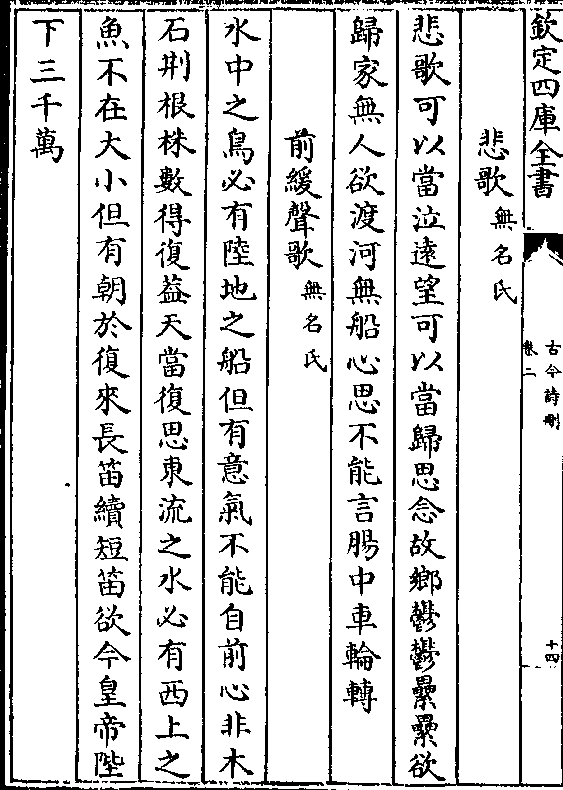 欽定四庫全書
古今詩刪
卷二
十四
悲歌無名氏
悲歌可以當泣遠望可以當歸思念故鄉鬱鬱纍纍欲
歸家無人欲渡河無船心思不能言腸中車輪轉
前緩聲歌無名氏
水中之鳥必有陸地之船但有意氣不能自前心非木
石荆根株數得復葢天當復思東流之水必有西上之
魚不在大小但有朝於復來長笛續短笛欲今皇帝陛
下三千萬